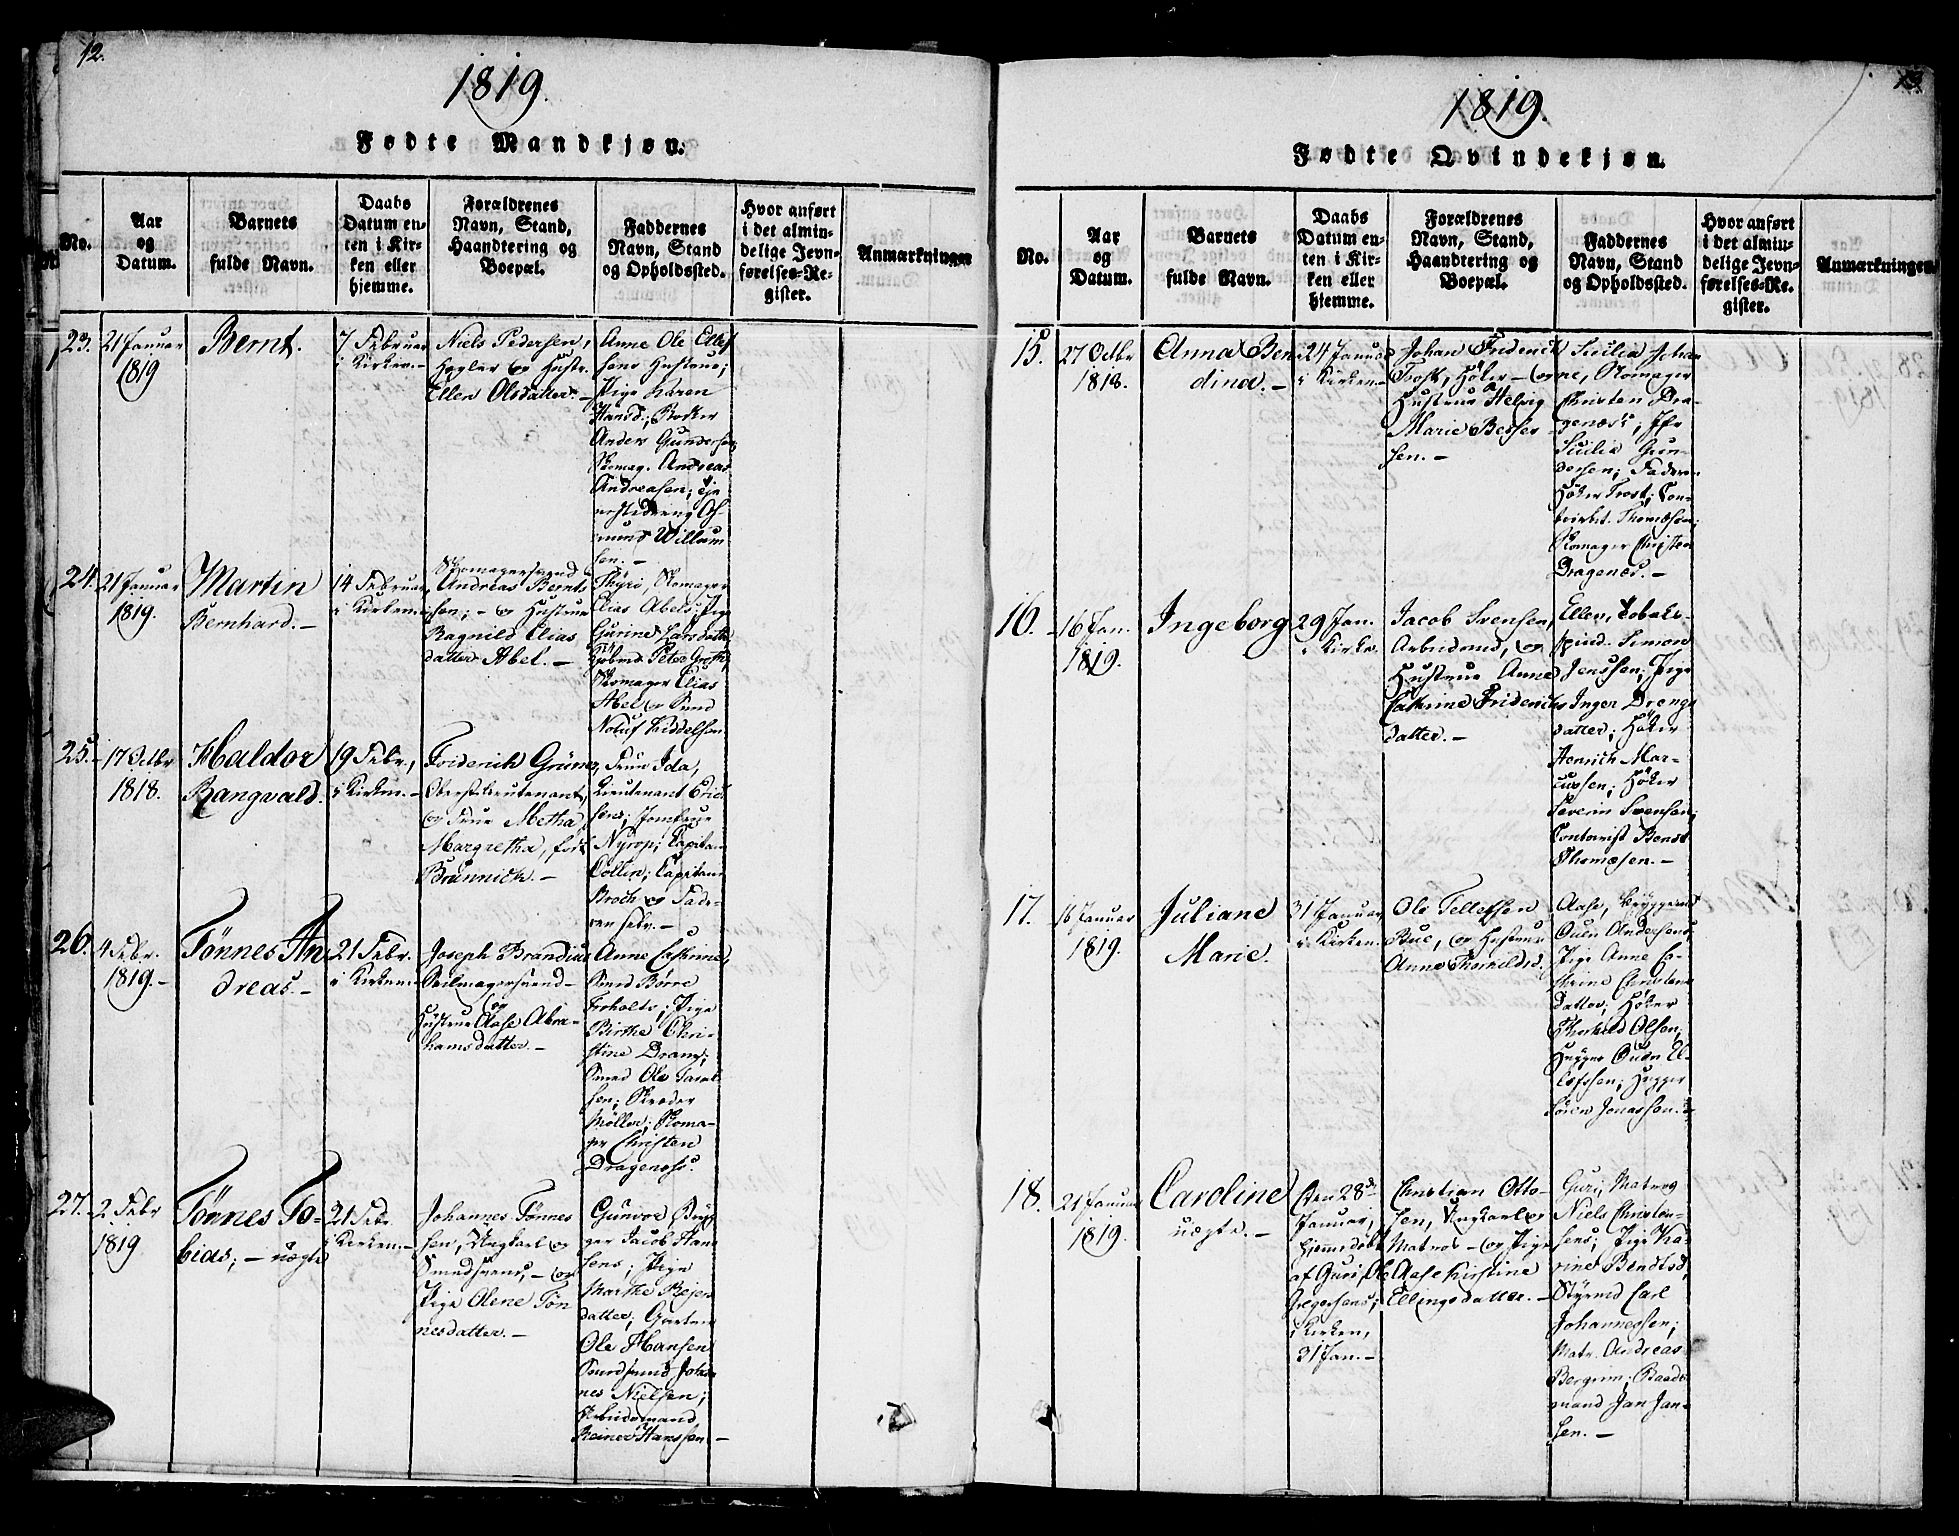 12.
1819.
Fødte Mandkjøn.
No.
Aar
og
Datum.
Barnets
fulde Navn.
Daabs
Datum en-
ten i Kir-
ken eller
hjemme.
Forældrenes
Navn, Stand,
Haandtering og
Boepæl.
Faddernes
Navn, Stand
og Opholdssted.
Hvor anført
i det almin-
delige Jevn-
førelses-Re-
gister.
Anmærkninger
23.
21 Januar
1819
Bernt.
7 Februar
i Kirken.-
Niels Pedersen,
og Hustr.
Ellen Olsdatter.-
Anne Ole Ellef
sens Hustrue;
Pige Karen
Hansd.;
Anders Gundersen,
Skomag. Andreas
Andreasen;
mund Willum
sen.-
24.
21 Januar
1819.
Martin
Bernhard.-
14 Februar
i Kirken
Skomagersvend
Andreas Bernt
sen;- og Hustrue
Ragnild Elias
datter Abel.-
Skomager
Elias Abels; Pige
Gurine Larsdatter
Kjøbmd Peter Groth,
Skomager Elias
Abel og Smd
Noluf Kiddelsen
25.-
17 Octbr
1818.
Haldor
Rangvald.
19 Febr.,
i Kirken.-
Friderich Grüner,
Oberstlieutenant,
og Frue Metha
Margretha, født
Brünnich.-
Frue Ida,
Lieutenant Erich
sens; Jomfrue
Nyrop; Capitain
Collin; Capitain
Broch og Fade-
ren selv.-
26.
4 Febr.
1819.-
Tönnes An
dreas.-
21 Febr.
i Kirken
Joseph Brandius
Seilmagersvend-
og
Hustrue Aase Abra-
hamsdatter.-
Anne Cathrine,
Smed Börre
Pige
Birthe Chri-
stine Drang;
Smed Ole Tarul
sen; Skreder
Möller; Skoma-
ger Christen
Dragenæs.
27.-
2 Febr
1819
Tönnes To-
bias;- uægte
21 Febr.
i Kirken.-
Johannes Tönnes
sen, Ungkarl og
Smedsvend,- og
Pige Olene Tön
nesdatter.-
Gunvor, Bryg
ger Jacob Han
sens; Pige
Marthe Rejer
datter; Gartner
Ole Hansen
Smedsvend Johan
nes Nielsen;
Arbeidsmand
Reiner Hanssen.-
13.
1819.
Fødte Qvindekjøn.
No.
Aar
og
Datum.
Barnets
fulde Navn.
Daabs
Datum en-
ten i Kir-
ken eller
hjemme.
Forældrenes
Navn, Stand,
Haandtering og
Boepæl.
Faddernes
Navn, Stand
og Opholdssted.
Hvor anført
i det almin-
delige Jevn-
førelses-Re-
gister.
Anmærkninger
15.
27 Octbr
1818.
Anna Ben
dina.-
24 Januar
i Kirken.-
Johan Friderich
Trost, Höker- og
Hustrue Helvig
Marie Besser-
sen.-
Sicilia Johan
ne, Skomager
Christen Dra-
genæs's; Jfr
Sicilia Gun-
dersen; Faderen
Höker Trost; Con-
toirbet. Thomæsen;
Skomager Christen
Dragenæs.-
16.-
16 Jan.
1819.
Ingeborg
29 Jan.
i Kirken
Jacob Svensen,
Arbeidsmd, og
Hustrue Anne
Cathrine Friderichs
datter.-
Ellen, Tobaks-
spind. Simon
Jenssen; Pige
Inger Drengs
datter; Höker
Henrich Mar-
cussen; Höker
Severin Svensen,
Contorist Bendt
Thomæsen.-
17.-
16 Januar
1819.
Juliane
Marie.
31 Januar
i Kirken.
Ole Tellefsen
Bue, og Hustrue
Anne Thorkildsd.
Aase, Bryggermd
Ouen Andersens;
Pige Anne Ca-
thrine Christens
datter; Höker
Thorkild Olsen;
Huggr Ouen El-
lefssen; Hugger
Sören Jonassen.-
18.
21 Januar
1819.
Caroline
uægte.-
Den 28de
Januar,
hjemmedøbt
af Guri Ole
Gregersens;
i Kirken,
31 Jan.-
Christian Otto-
sen, Ungkarl og
Matros- og Pige
Aase Kirstine
Ellingsdatter.-
Guri, Matros
Niels Christen-
sens; Pige Ka-
rine Bendtsd,
Styrmd Carl
Johannessen;
Matr. Andreas
Bergrem; Baads-
mand Jan Jan-
sen.-